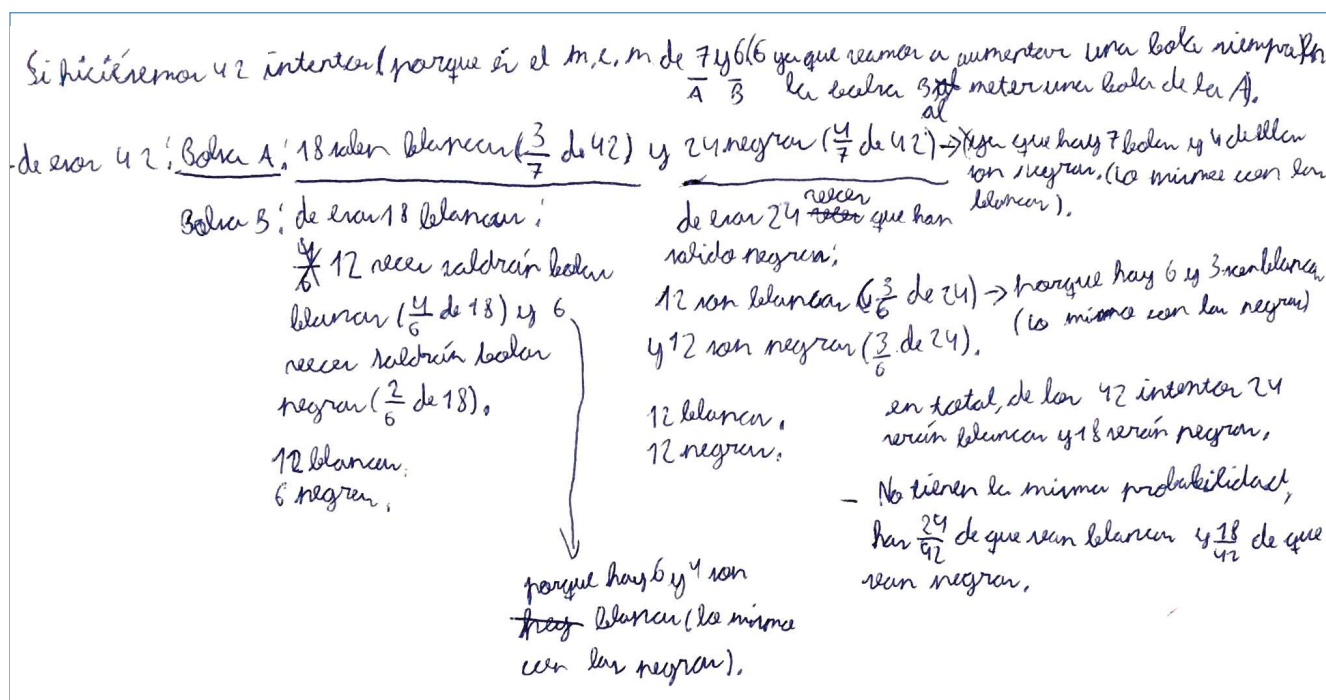 Si hiciésemos 42 intentos (porque es el m.c.m de 7 y 6 (6 ya que vamos a aumentar una bola siempre en
A B la bolsa B al meter una bola de la A).
- de esos 42: Bolsa A: 18 salen blancas (3/7 de 42) y 24 negras (4/7 de 42) → ya que hay 7 bolas y 4 de ellas
son negras. (lo mismo con las
blancas).
Bolsa B: de esas 18 blancas:
12 veces saldrán bolas
blancas (4/6 de 18) y 6
veces saldrán bolas
negras (2/6 de 18).
12 blancas.
6 negras.
porque hay 6 y 4 son
blancas (lo mismo
con las negras).
de esas 24 veces que han
salido negras:
12 son blancas (3/6 de 24) → porque hay 6 y 3 son blancas
(lo mismo con las negras)
y 12 son negras (3/6 de 24).
12 blancas.
12 negras.
en total, de los 42 intentos 24
serán blancas y 18 serán negras.
- No tienen la misma probabilidad,
hay 24/42 de que sean blancas y 18/42 de que
sean negras.